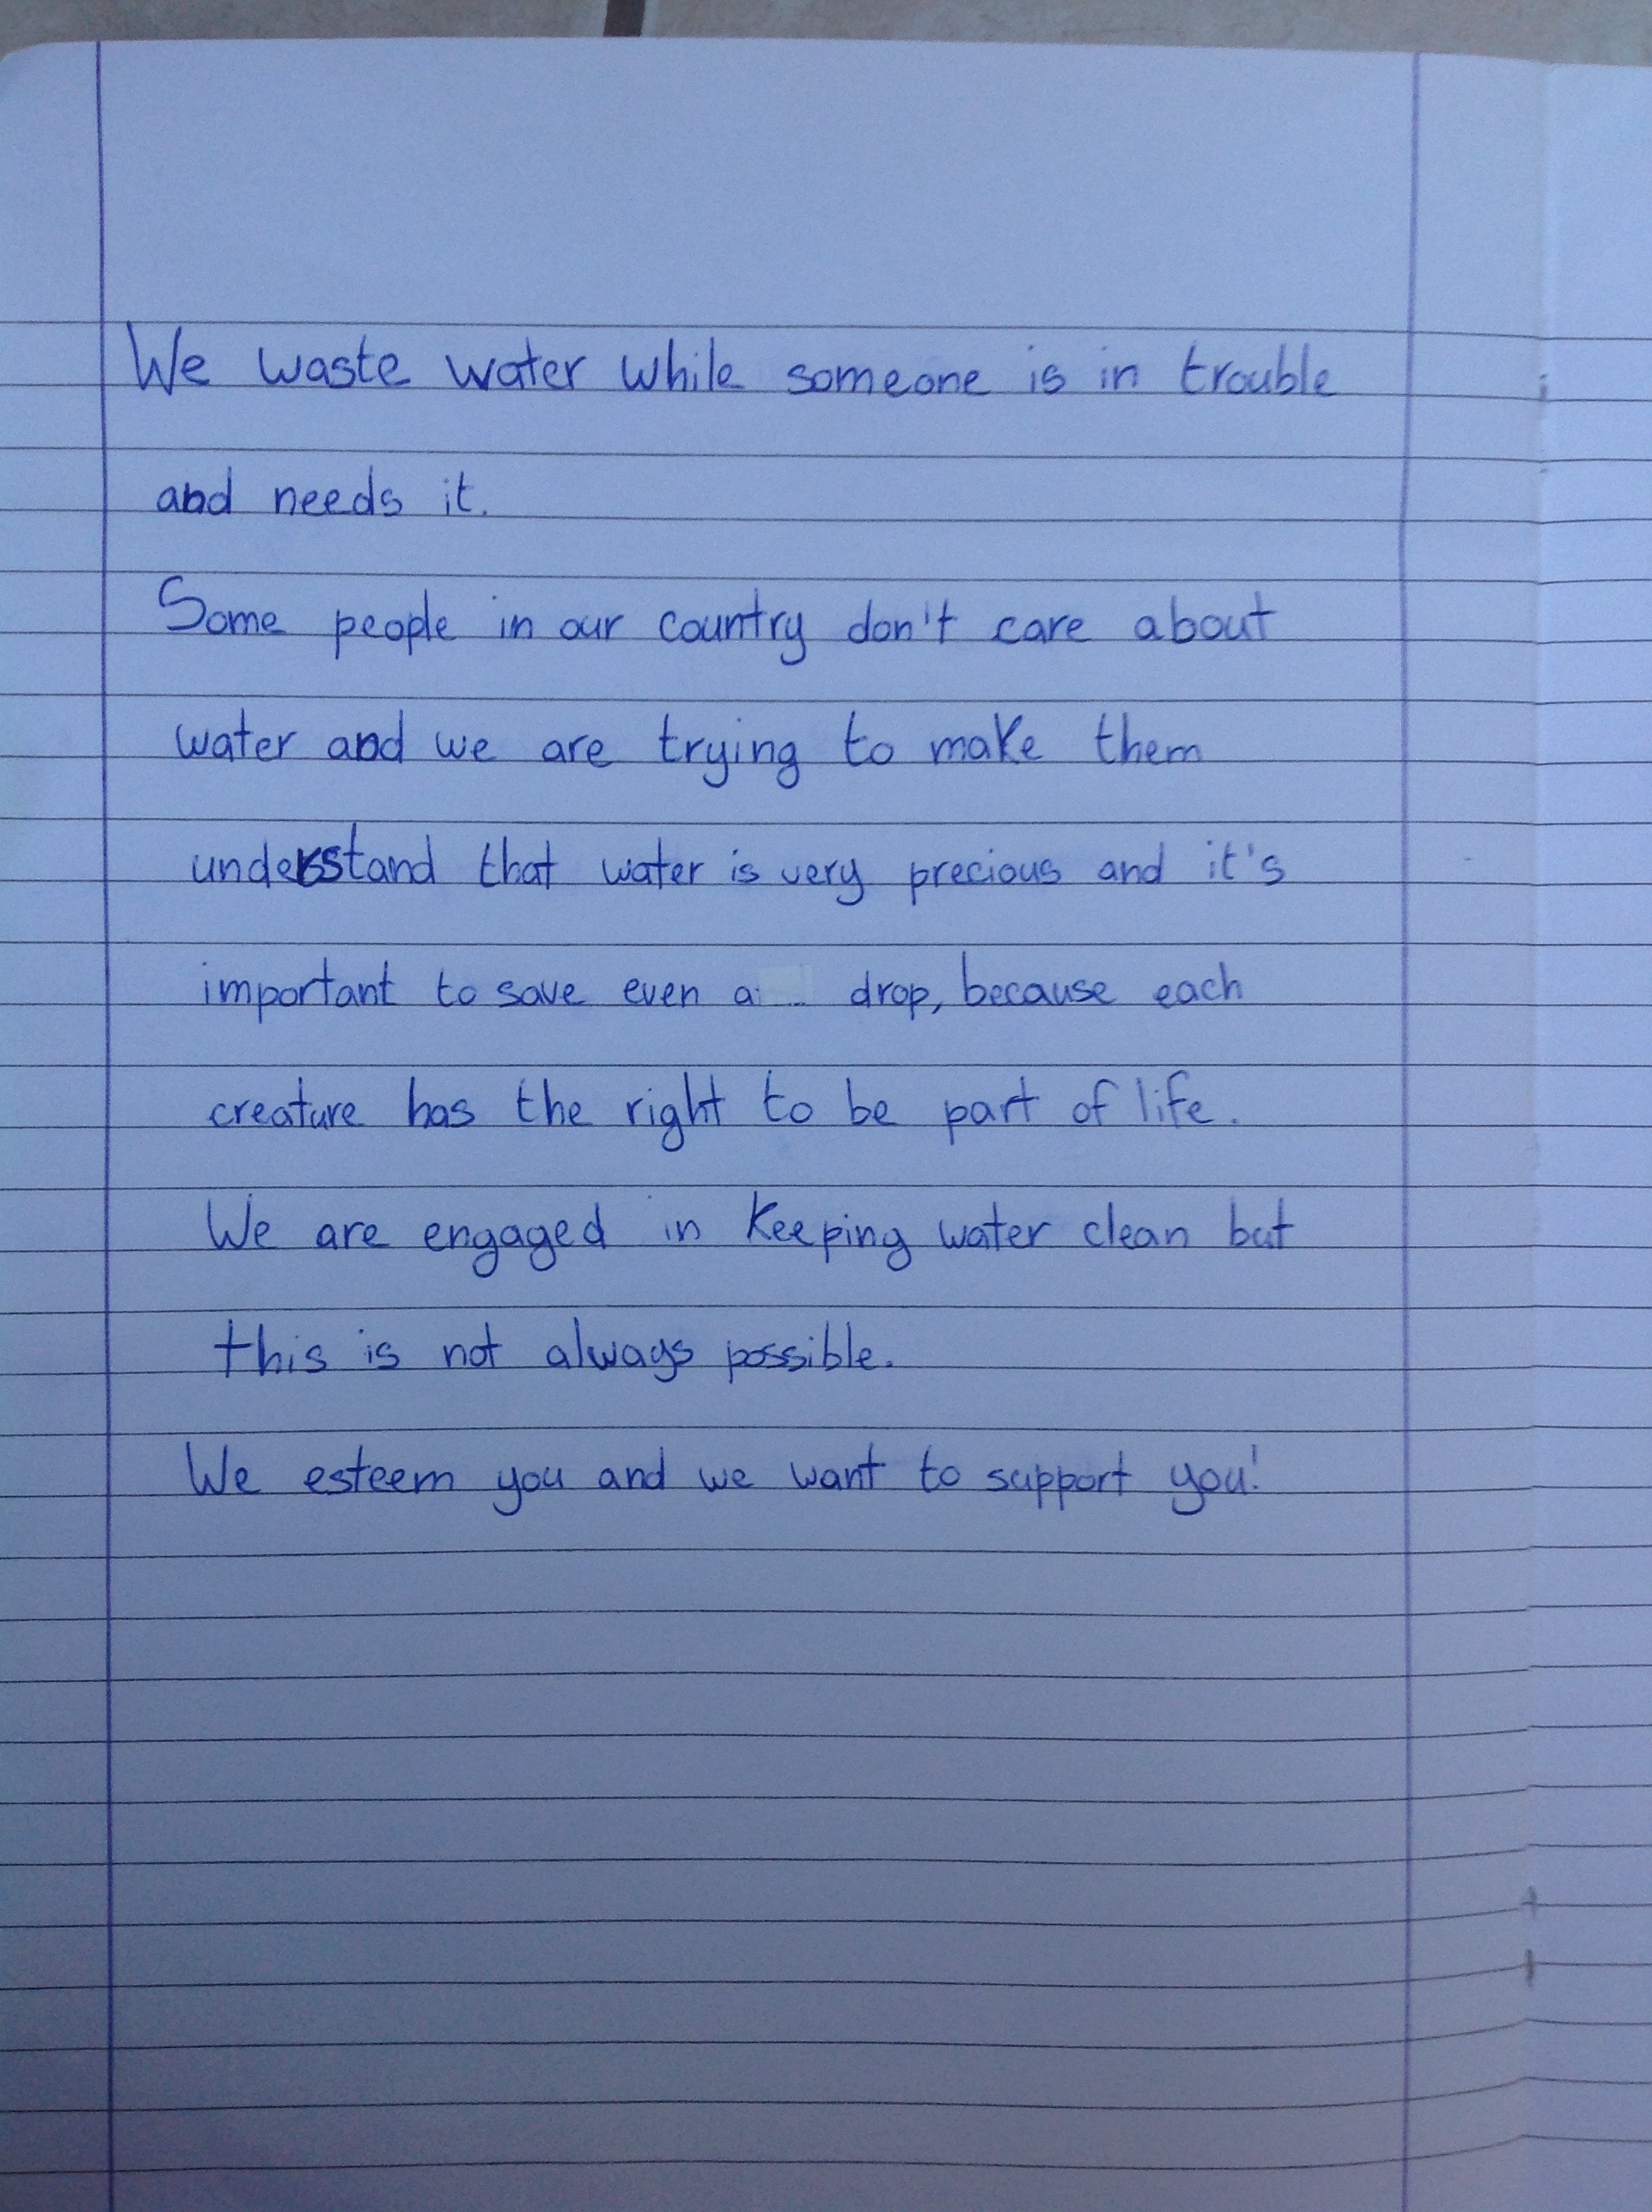 We waste water while someone is in trouble
and needs it.
Some people in our country don't care about
water and we are trying to make them
understand that water is very precious and it's
important to save even a drop, because each
creature has the right to be part of life.
We are engaged in keeping water clean but
this is not always possible.
We esteem you and we want to support you!